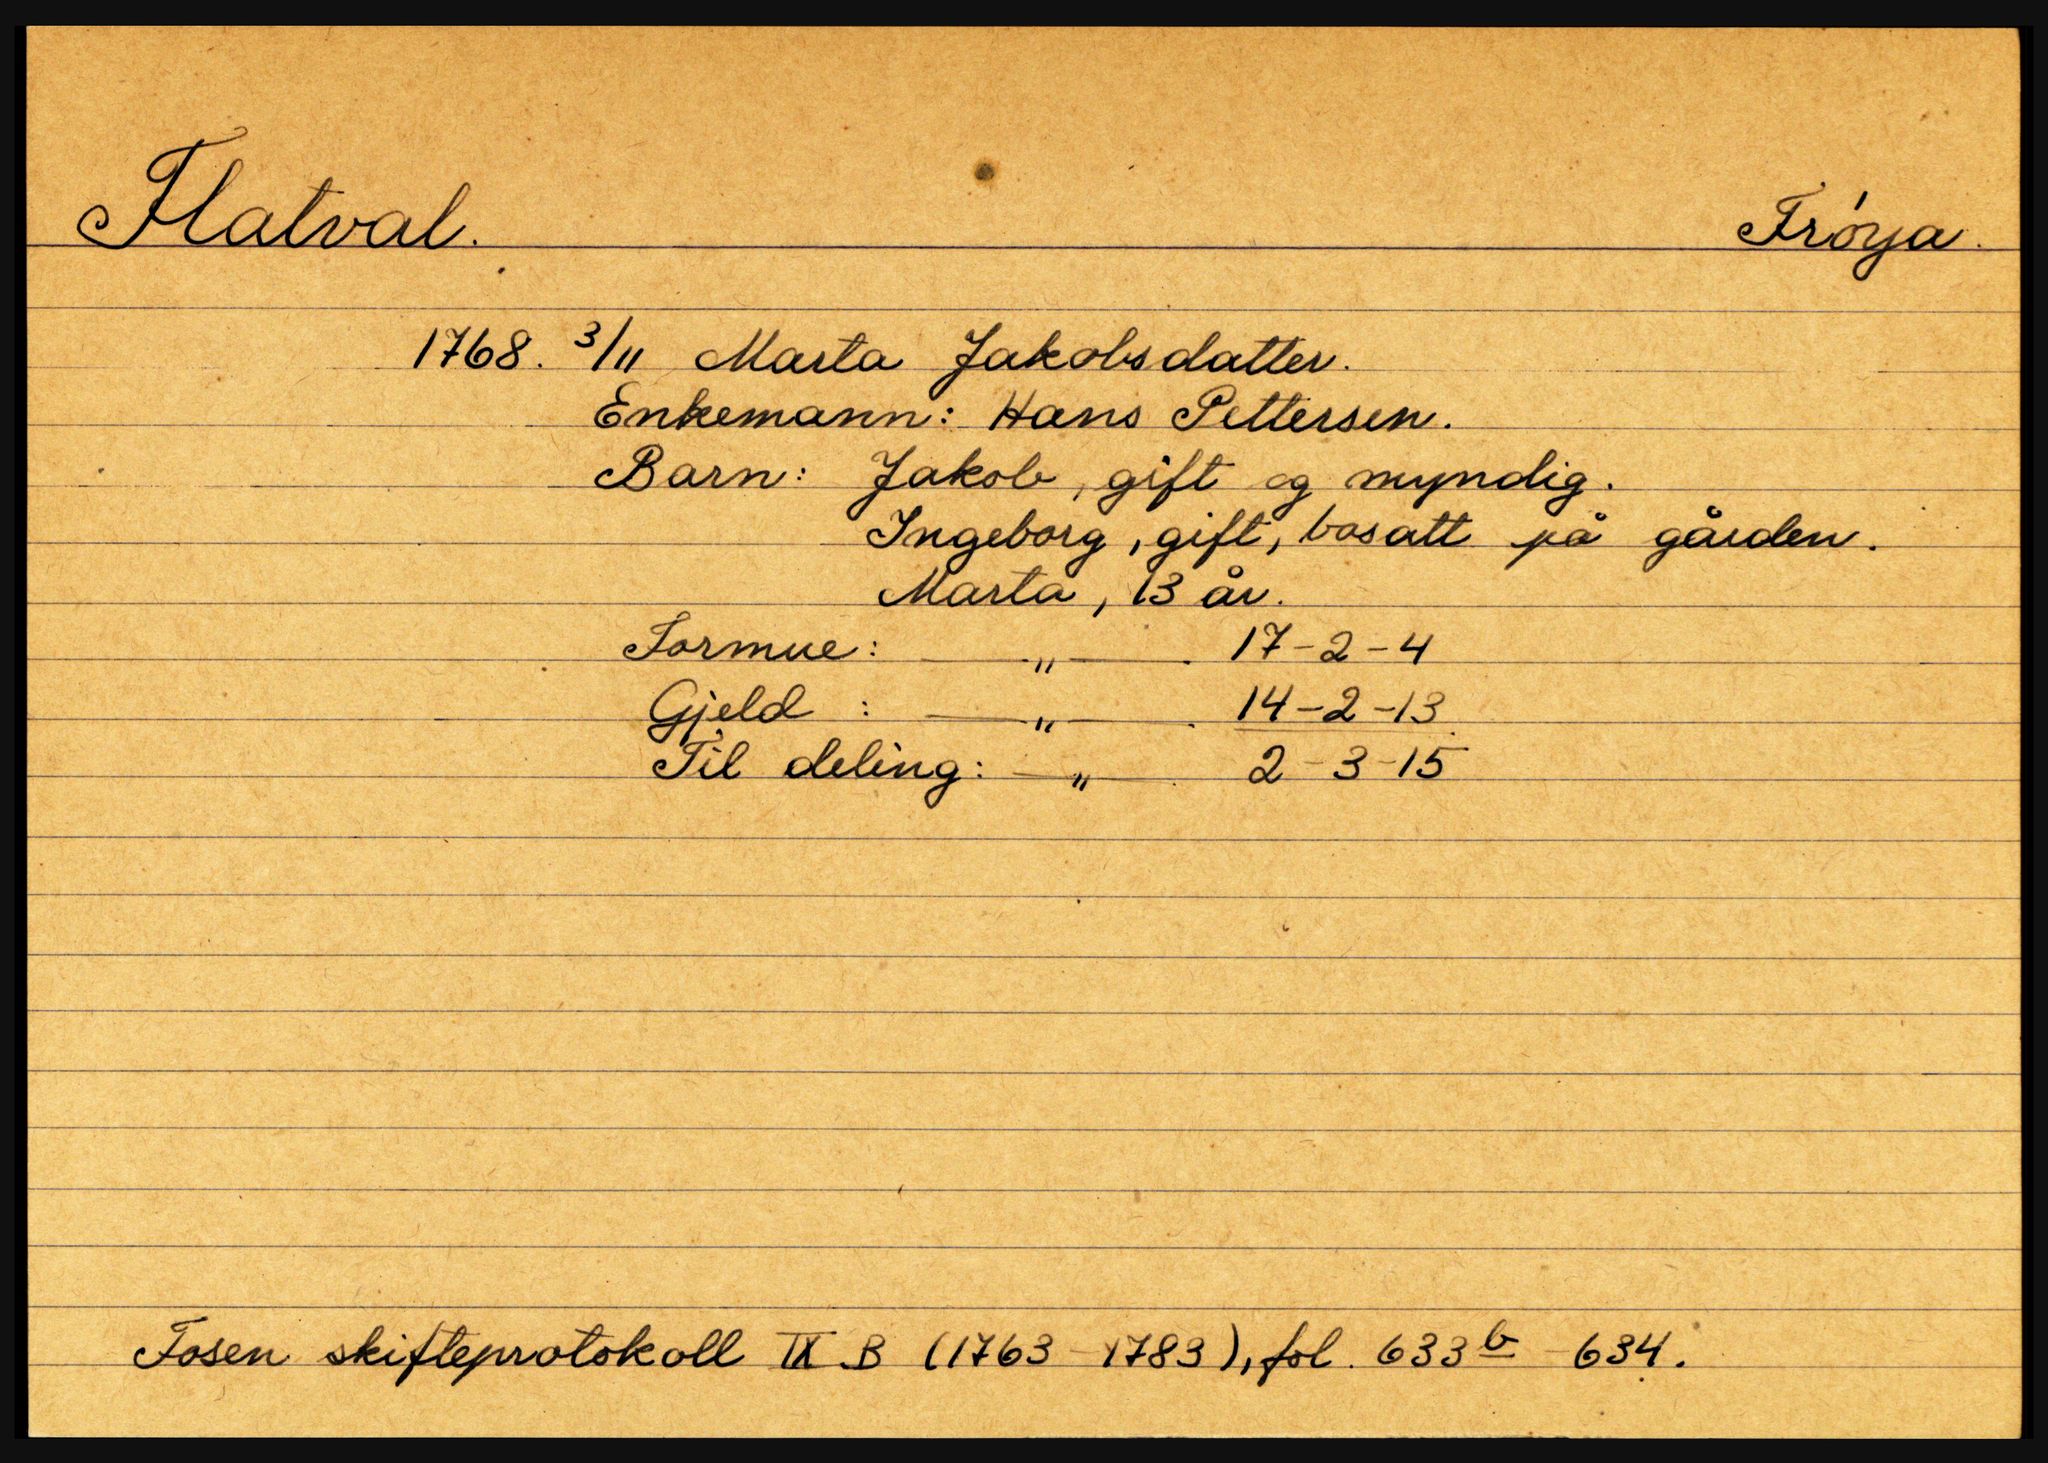 Flatval. Frøya.
1768. 3/11 Marta Jakobsdatter.
Enkemann: Hans Pettersen.
Barn: Jakob, gift og myndig.
Ingeborg, gift, bosatt på gården.
Marta, 13 år.
Formue: — " — 17-2-4
Gjeld : — " — 14-2-13
Til deling: — " — 2-3-15
Fosen skifteprotokoll IX B (1763-1783), fol. 633b - 634.